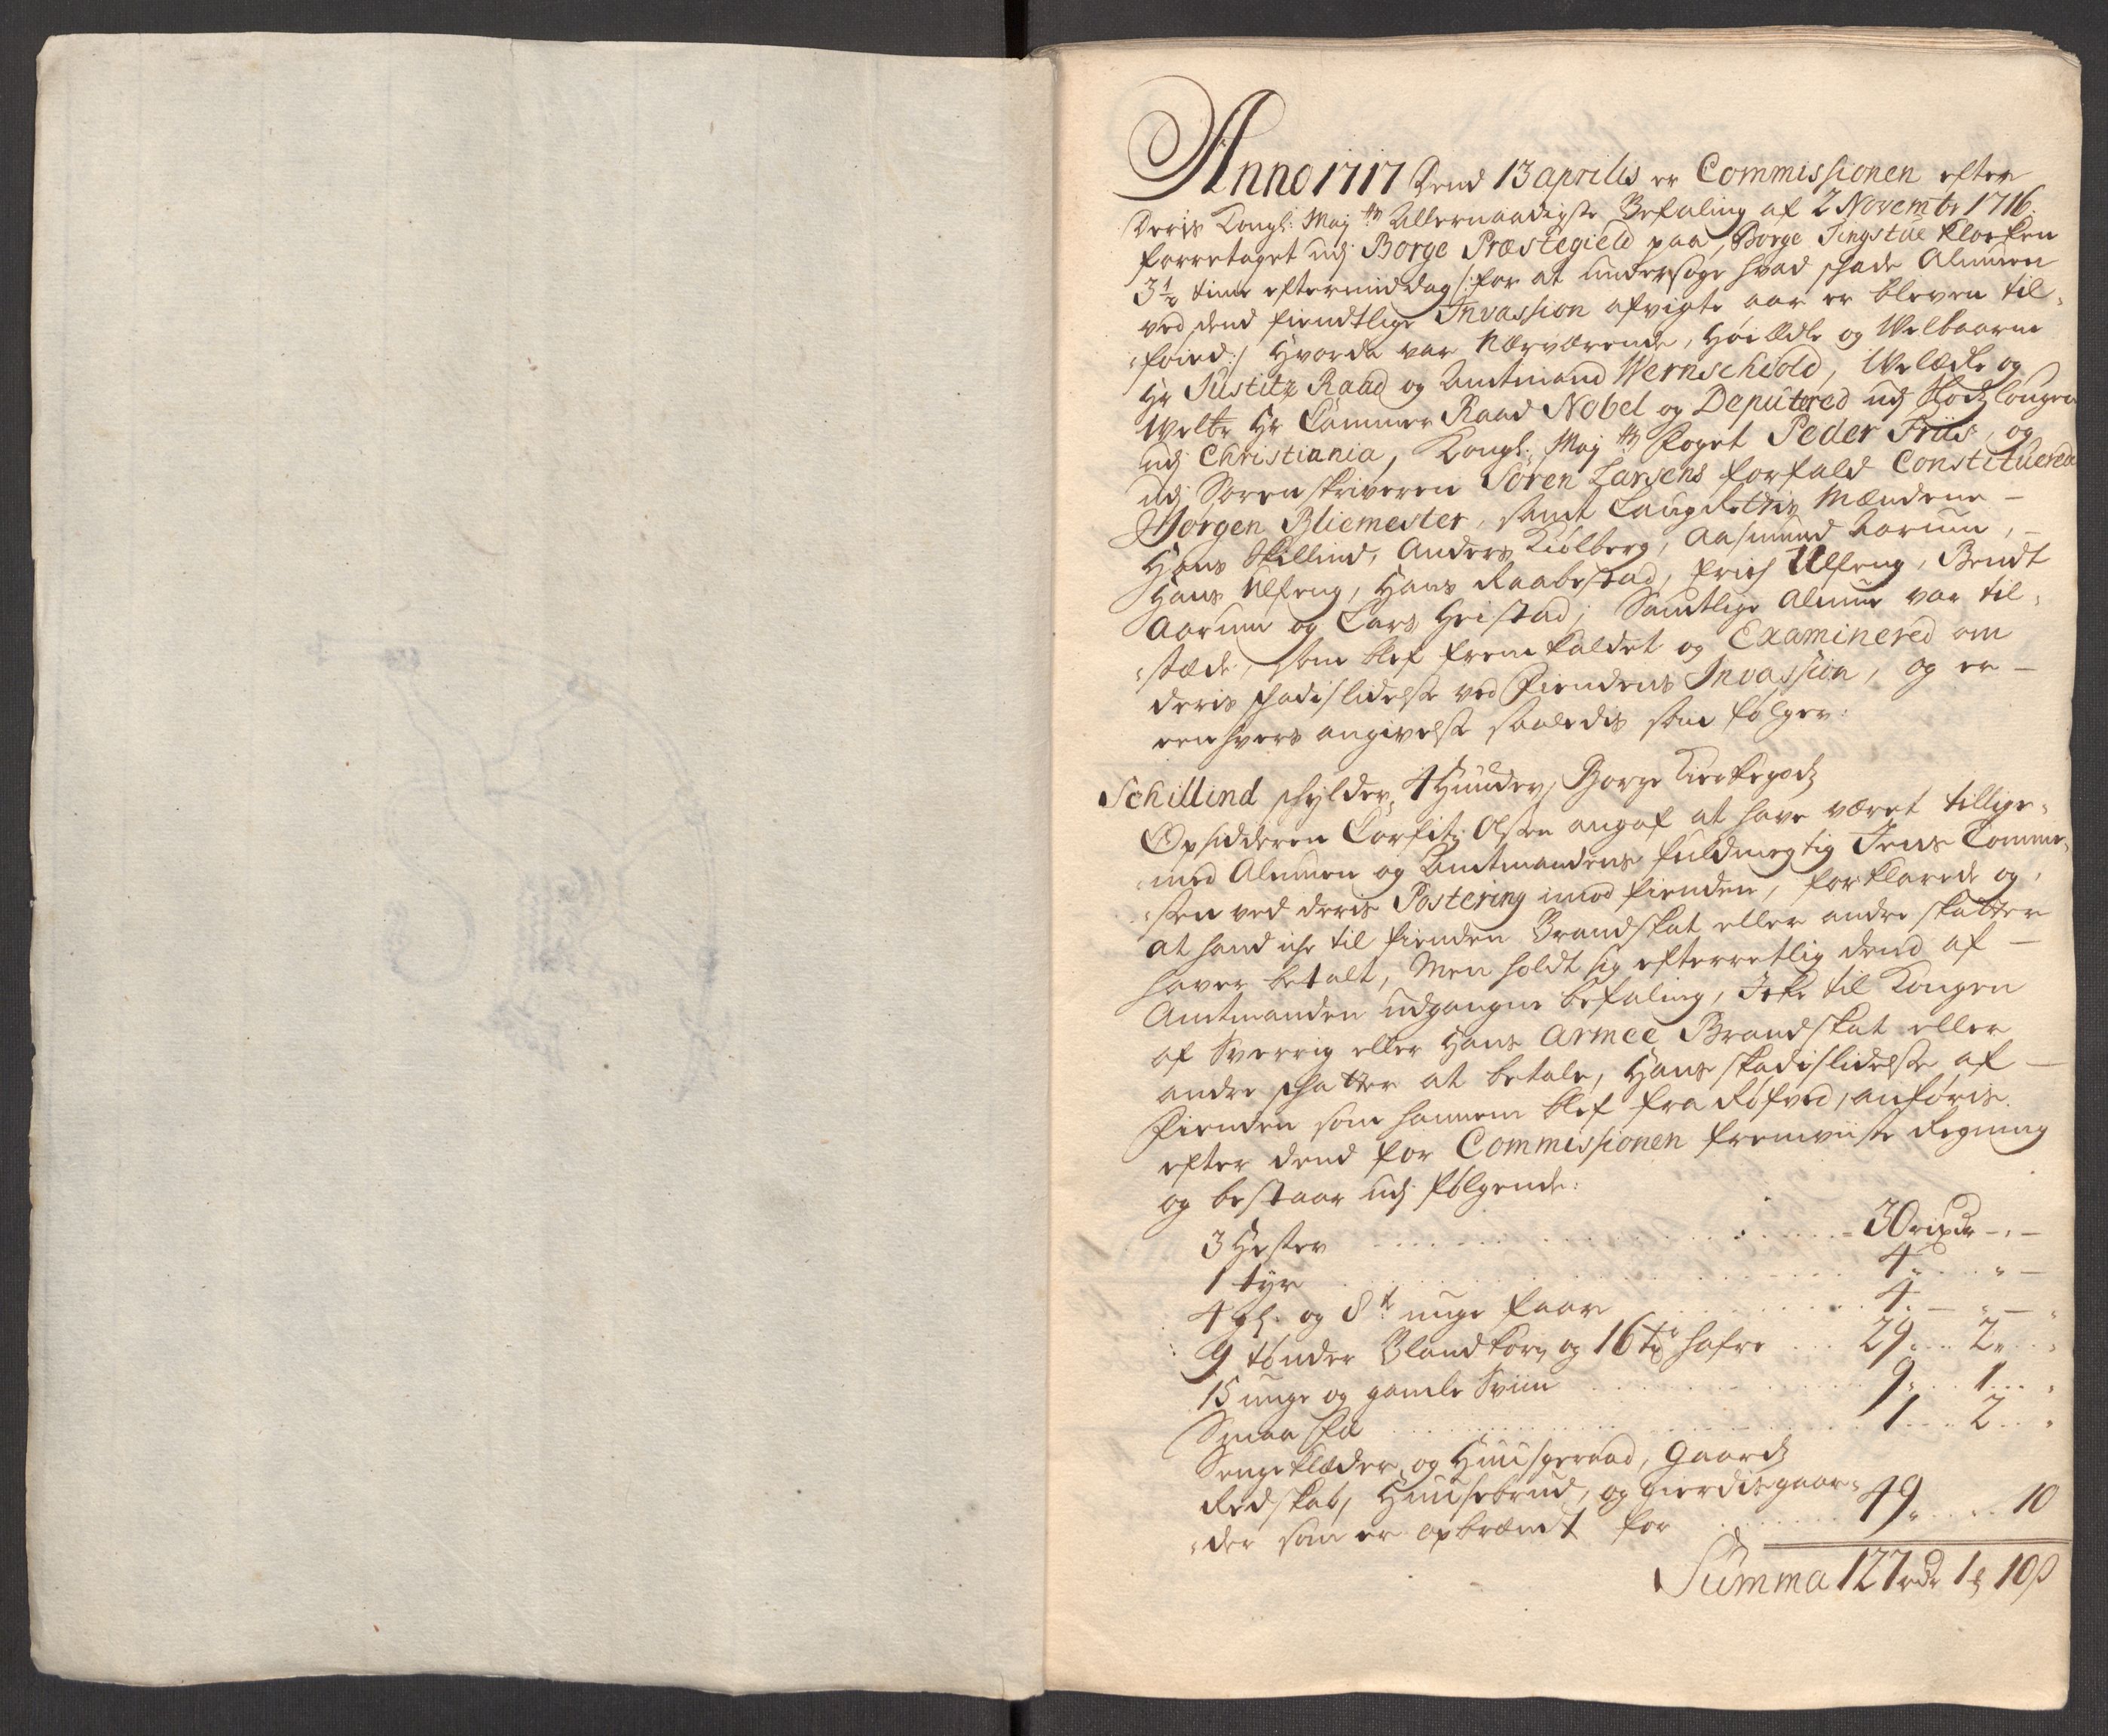 Anno 1717 Dend 13 aprilis er Commissionen efter
Deris Kongl: May:ts Allernaadigste Befaling af 2 Novembr 1716.
forretaget udj Borge Præstegield paa Borge Tingstue Klocken
3½ time eftermiddag /: for at undersøge hvad schade Almuen
ved dend fiendtlige Invassion afvigte aar er bleven til-
føied :/ Hvorda var Nærværende, Høiædle og Welbaarne
Hr Justitz Raad og Amtmand Wernschiold, Welædle og
Welbr Hr Cammer Raad Nobel og Deputered udj Slodzlougen
udj Christiania, Kongl: May:ts Foget Peder Friis, og
udj Sorenskriveren Søren Larsens forfald Constituered
Jørgen Bliemester, samt Laugrettis Mændene -
Hans Skillind, Anders Kiølberg, Aasmund Aarum, -
Hans Ulfeng, Hans Raabestad, Erich Ulfeng, Bendt
Aarum og Lars Heistad; Samtlige Almue var til-
stæde, som blef fremkaldet og Examinered om
deris schadislidelse ved Fiendens Invassion, og er -
een hvers angivelse saaledis som følger:
Schillind schylder 4 Huuder, Borge Kierkegodz
Opsidderen Corfitz Olsen angaf at have været tillige-
med Almuen og Amtmandens fuldmegtig Jens Comme-
sen ved deris Postering imod fienden, forklarede og,
at hand iche til fienden Brandskat eller andre skatter
haver betalt, Men holdt sig efterretlig dend af -
Amtmanden udgangne befaling, Icke til Kongen
af Sverrig eller Hans Armee Brandskat eller
andre schatter at betale, Hans skadislidelse af -
Fienden som hannem blef fra Røfved, anføris.
efter dend for Commissionen fremviiste Regning
og bestaar udj følgende:
3 Hester ... 30 rixdr - " -
1 tyr ... 4 " " -
4 gl. og 8te unge faar ... 4 - " - "
9 tønder Blandkorn og 16 tr hafre ... 29 .. 2 .. "
15 unge og gamle Sviin ... 9 .. 1 .. "
Smaa fæ ... 1 .. 2 .. "
Sengeklæder og Huusgeraad, Gaardz
Redskab, Huusebrud, og gierdisgaar-
der som er opbrændt for ... 49 " .. 10
Summa 127 rdr 1 ₰ 10 ß